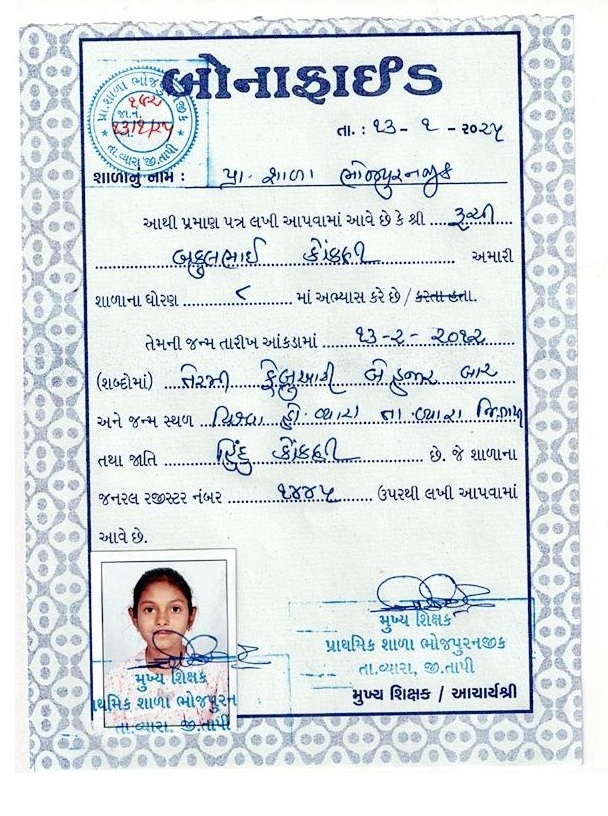 બોનાફાઈડ
પ્રા.શાળા ભોજપુરનજીક
જા.નં.
૧૩/૧/૨૫
તા.વ્યારા જી.તાપી
તા. : ૧૩ - ૧ - ૨૦૨૫
શાળાનું નામ : પ્રા. શાળા ભોજપુરનજીક
આથી પ્રમાણ પત્ર લખી આપવામાં આવે છે કે શ્રી રૂચી
બકુલભાઈ કોંકણી અમારી
શાળાના ધોરણ ૮ માં અભ્યાસ કરે છે / કરતા હતા.
તેમની જન્મ તારીખ આંકડામાં ૧૩-૨-૨૦૧૨
(શબ્દોમાં) તેરમી ફેબ્રુઆરી બે હજાર બાર
અને જન્મ સ્થળ વ્યારા તા વ્યારા જિ.તાપી
તથા જાતિ હિંદુ કોંકણી છે. જે શાળાના
જનરલ રજીસ્ટર નંબર ૧૪૪૫ ઉપરથી લખી આપવામાં
આવે છે.
મુખ્ય શિક્ષક
પ્રાથમિક શાળા ભોજપુરનજીક
તા.વ્યારા, જી.તાપી
મુખ્ય શિક્ષક / આચાર્યશ્રી
મુખ્ય શિક્ષક
થમિક શાળા ભોજપુરન
તા.વ્યારા. જી.તાપી